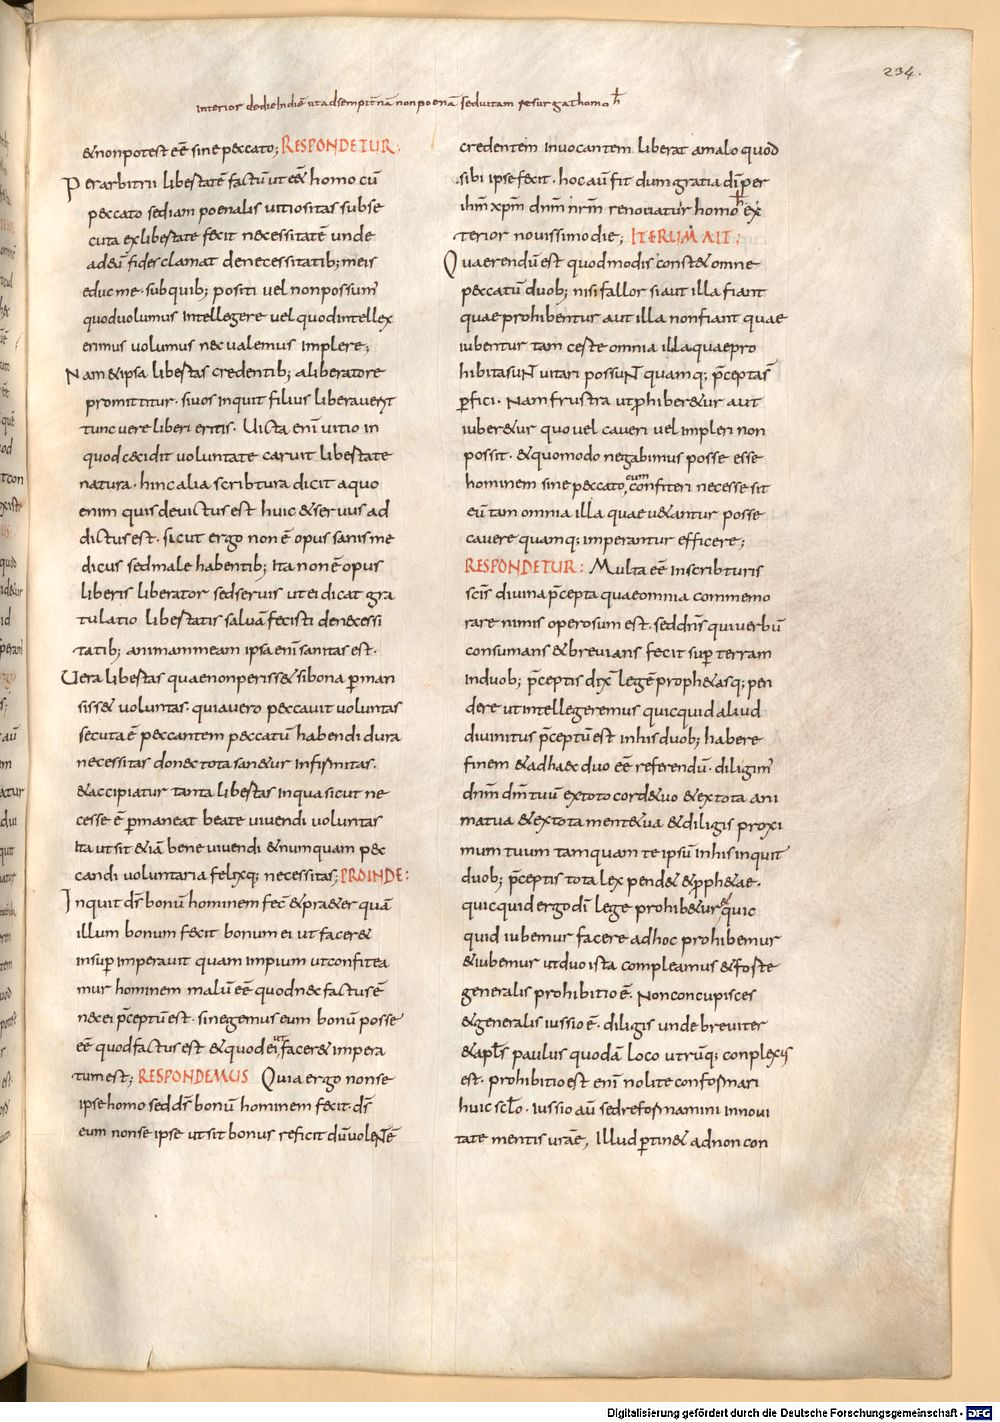 234.
interior dedie Indiē ut adsempit̄nā non poenā sed uitam resurgat homo h̄
& non potest eē sine peccato; RESPONDETUR:
Per arbitrii libertatē factū ut eēt homo cū
peccato sed iam poenalis uitiositas subse
cuta ex libertate fecit necessitatē unde
ad eū fides clamat de necessitatib; meis
educ me. sub quib; positi uel non possum̄
quod uolumus intellegere uel quod intellex
erimus uolumus nec ualemus implere;
Nam & ipsa libertas credentib; a liberatore
promittitur. si uos inquit filius liberauerit
tunc uere liberi eritis. Uicta enī uitio in
quod cecidit uoluntate caruit libertate
natura. hinc alia scribtura dicit a quo
enim quis deuictus est huic & seruus ad
dictus est. sicut ergo non ē opus sanis me
dicus sed male habentib; Ita non ē opus
liberis liberator sed seruis ut ei dicat gra
tulatio libertatis saluā fecisti de necessi
tatib; animam meam ipsa enī sanitas est.
Uera libertas quae non periss& si bona p̄man
siss& uoluntas. quia uero peccauit uoluntas
secuta ē peccantem peccatū habendi dura
necessitas donec tota san&ur infirmitas.
& accipiatur tanta libertas in qua sicut ne
cesse ē p̄maneat beate uiuendi uoluntas
Ita ut sit & iā bene uiuendi & numquam pec
candi uoluntaria felixq; necessitas; PROINDE:
Inquit ds̄ bonū hominem fec̄ & praeter quā
illum bonum fecit bonum ei ut facer&
insup̄ imperauit quam impium ut confitea
mur hominem malū eē quod nec factus ē
nec ei p̄ceptū est. si negemus eum bonū posse
eē quod factus est & quod ei ut facer& impera
tum est; RESPONDEMUS Quia ergo non se
ipse homo sed ds̄ bonū hominem fecit. ds̄
eum non se ipse ut sit bonus reficit dū uolentē
credentem inuocantem liberat a malo quod
sibi ipse fecit. hoc aū fit dum gratia dī per
ihm̄ xp̄m dn̄m nr̄m renouatur homo h̄ ex
terior nouissimo die; ITERUM AIT:
Quaerendū est quod modis const& omne
peccatū duob; nisi fallor si aut illa fiant
quae prohibentur aut illa non fiant quae
iubentur tam certe omnia illa quae pro
hibita sunt uitari possunt quamq; p̄cepta s̄
p̄fici. Nam frustra ut prohiber&ur aut
iuber&ur quo uel caueri uel impleri non
possit. & quomodo negabimus posse esse
hominem sine peccato, cum confiteri necesse sit
eū tam omnia illa quae u&antur posse
cauere quamq; imperantur efficere;
RESPONDETUR: Multa eē in scribturis
scīs diuina p̄cepta quae omnia commemo
rare nimis operosum est. sed dn̄s qui uerbū
consumans & breuians fecit sup̄ terram
in duob; p̄ceptis dix̄ legē proph&asq; pen
dere ut intellegeremus quicquid aliud
diuinitus p̄ceptū est in his duob; habere
finem & ad haec duo eē referendū. diligim̄
dn̄m dm̄ tuū ex toto corde tuo & ex tota ani
ma tua & ex tota mente tua & diligis proxi
mum tuum tamquam te ipsū in his inquit
duob; p̄ceptis tota lex pend& & pph&ae.
quicquid ergo dī lege prohib&ur & quic
quid iubemur facere ad hoc prohibemur
& iubemur ut duo ista compleamus & forte
generalis prohibitio ē. Non concupisces
& generalis iussio ē. diligis unde breuiter
& apl̄s paulus quodā loco utrūq; conplexus
est. prohibitio est enī nolite conformari
huic sclo. iussio aū sed reformamini in noui
tate mentis urāe, Illud p̄tin& ad non con
Digitalisierung gefördert durch die Deutsche Forschungsgemeinschaft - DFG